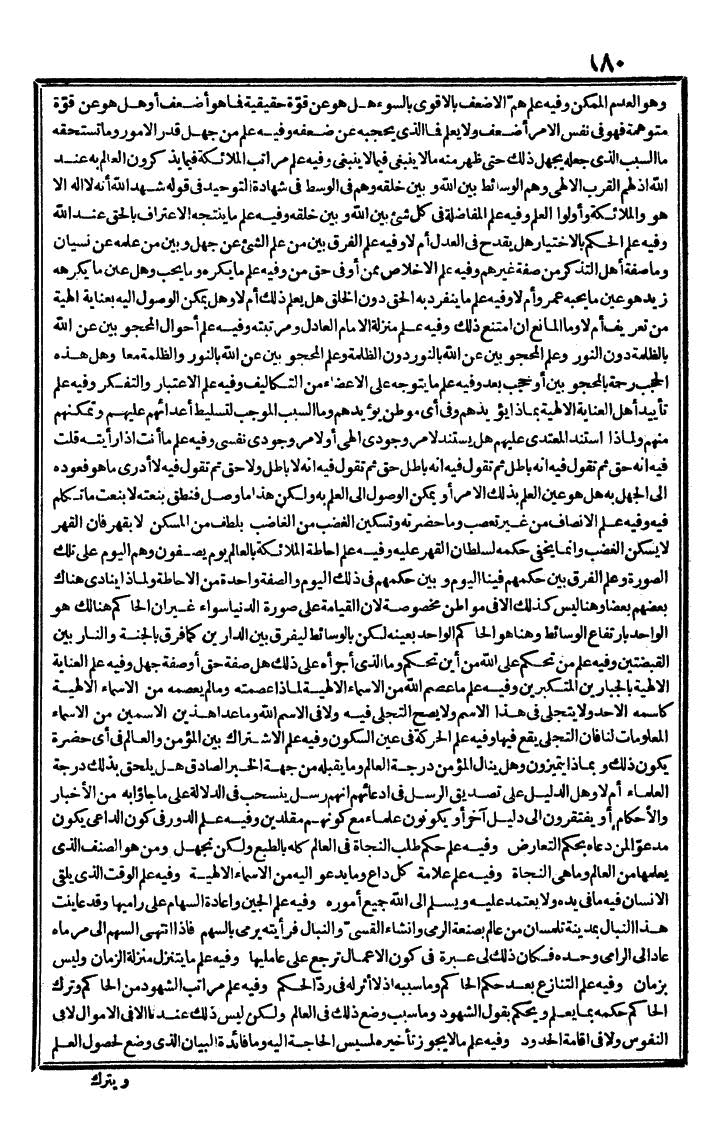 ١٨٠
وهو العدم الممكن وفيه علم همّ الاضعف بالاقوى بالسوء هل هو عن قوّة حقيقية فما هو أضعف أو هل هو عن قوّة
متوهمة فهو فى نفس الامر أضعف ولا يعلم فما الذى يحجبه عن ضعفه وفيه علم من جهل قدر الامور وما تستحقه
ما السبب الذى جعله يجهل ذلك حتى ظهر منه ما لا ينبغى فيما لا ينبغى وفيه علم مراتب الملائكة فيما يذكرون العالم به عند
الله اذ لهم القرب الالهى وهم الوسائط بين الله و بين خلقه وهم فى الوسط فى شهادة التوحيد فى قوله شهد الله أنه لا اله الا
هو والملائكة وأولوا العلم وفيه علم المفاضلة فى كل شئ بين الله و بين خلقه وفيه علم ما ينتجه الاعتراف بالحق عند الله
وفيه علم الحكم بالاختيار هل يقدح فى العدل أم لا وفيه علم الفرق بين من علم الشئ عن جهل و بين من علمه عن نسيان
وما صفة أهل التذكر من صفة غيرهم وفيه علم الاخلاص ممن أو فى حق من وفيه علم ما يكره وما يحب وهل عين ما يكرهه
زيد هو عين ما يحبه عمر وأم لا وفيه علم ما ينفرد به الحق دون الخلق هل يعلم ذلك أم لا وهل يمكن الوصول اليه بعناية الهية
من تعريف أم لا وما المانع ان امتنع ذلك وفيه علم منزلة الامام العادل ومرتبته وفيه علم أحوال المحجو بين عن الله
بالظلمة دون النور وعلم المحجو بين عن الله بالنور دون الظلمة وعلم المحجو بين عن الله بالنور والظلمة معا وهل هذه
الحجب رحمة بالمحجو بين أو حجب بعد وفيه علم ما يتوجه على الاعضاء من التكاليف وفيه علم الاعتبار والتفكر وفيه علم
تأييد أهل العناية الالهية بماذا يؤيدهم وفى أى موطن يؤيدهم وما السبب الموجب لتسليط أعدائهم عليهم وتمكنهم
منهم ولماذا استند المعتدى عليهم هل يستند لامر وجودى الهى أو لامر وجودى نفسى وفيه علم ما أنت اذا رأيته قلت
فيه انه حق ثم تقول فيه انه باطل ثم تقول فيه انه باطل حق ثم تقول فيه انه لا باطل ولا حق ثم تقول فيه لا أدرى ما هو فعوده
الى الجهل به هل هو عين العلم بذلك الامر أو يمكن الوصول الى العلم به ولكن هذا ما وصل فنطق بنعته لا بنعت ما تكلم
فيه وفيه علم الانصاف من غير تعصب وما حضرته وتسكين الغضب من الغاضب بلطف من المسكن لا بقهر فان القهر
لا يسكن الغضب وانما يخفى حكمه لسلطان القهر عليه وفيه علم احاطة الملائكة بالعالم يوم يصفون وهم اليوم على تلك
الصورة وعلم الفرق بين حكمهم فينا اليوم و بين حكمهم فى ذلك اليوم والصفة واحدة من الاحاطة ولماذا ينادى هناك
بعضهم بعضا وهنا ليس كذلك الا فى مواطن مخصوصة لان القيامة على صورة الدنيا سواء غير ان الحاكم هنالك هو
الواحد بارتفاع الوسائط وهنا هو الحاكم الواحد بعينه لكن بالوسائط ليفرق بين الدارين كما فرق بالجنة والنار بين
القبضتين وفيه علم من تحكم على الله من أين تحكم وما الذى أجرأه على ذلك هل صفة حق أو صفة جهل وفيه علم العناية
الالهية بالجبارين المتكبرين وفيه علم ما عصم الله من الاسماء الالهية لماذا عصمته وما لم يعصمه من الاسماء الالهية
كاسمه الاحد ولا يتجلى فى هذا الاسم ولا يصح التجلى فيه ولا فى الاسم الله وما عدا هذين الاسمين من الاسماء
المعلومات لنا فان التجلى يقع فيها وفيه علم الحركة فى عين السكون وفيه علم الاشتراك بين المؤمن والعالم فى أى حضرة
يكون ذلك و بماذا يتميزون وهل ينال المؤمن درجة العالم وما يقبله من جهة الخبر الصادق هل يلحق بذلك درجة
العلماء أم لا وهل الدليل على تصديق الرسل فى ادعائهم انهم رسل ينسحب فى الدلالة على ما جاؤا به من الأخبار
والأحكام أو يفتقرون الى دليل آخر أو يكونون علماء مع كونهم مقلدين وفيه علم الدور فى كون الداعى يكون
مدعوّا لمن دعاه بحكم التعارض وفيه علم حكم طلب النجاة فى العالم كله بالطبع ولكن تجهل ومن هو الصنف الذى
يعلمها من العالم وما هى النجاة وفيه علم علامة كل داع وما يدعو اليه من الاسماء الالهية وفيه علم الوقت الذى يلقى
الانسان فيه ما فى يده ولا يعتمد عليه و يسلم الى الله جميع أموره وفيه علم الجبن واعادة السهام على راميها وقد عاينت
هذا النبال بمدينة تلمسان من عالم بصنعة الرمى وانشاء القسىّ والنبال فرأيته يرمى بالسهم فاذا انتهى السهم الى مرماه
عاد الى الرامى وحده فكان ذلك لى عبرة فى كون الاعمال ترجع على عامليها وفيه علم ما يتنزل منزلة الزمان وليس
بزمان وفيه علم التنازع بعد حكم الحاكم وما سببه اذ لا أثر له فى ردّ الحكم وفيه علم مراتب الشهود من الحاكم وترك
الحاكم حكمه بما يعلم و يحكم بقول الشهود وما سبب وضع ذلك فى العالم ولكن ليس ذلك عندنا الا فى الاموال لا فى
النفوس ولا فى اقامة الحدود وفيه علم ما لا يجوز تأخيره لمسيس الحاجة اليه وما فائدة البيان الذى وضع لحصول العلم
ويترك